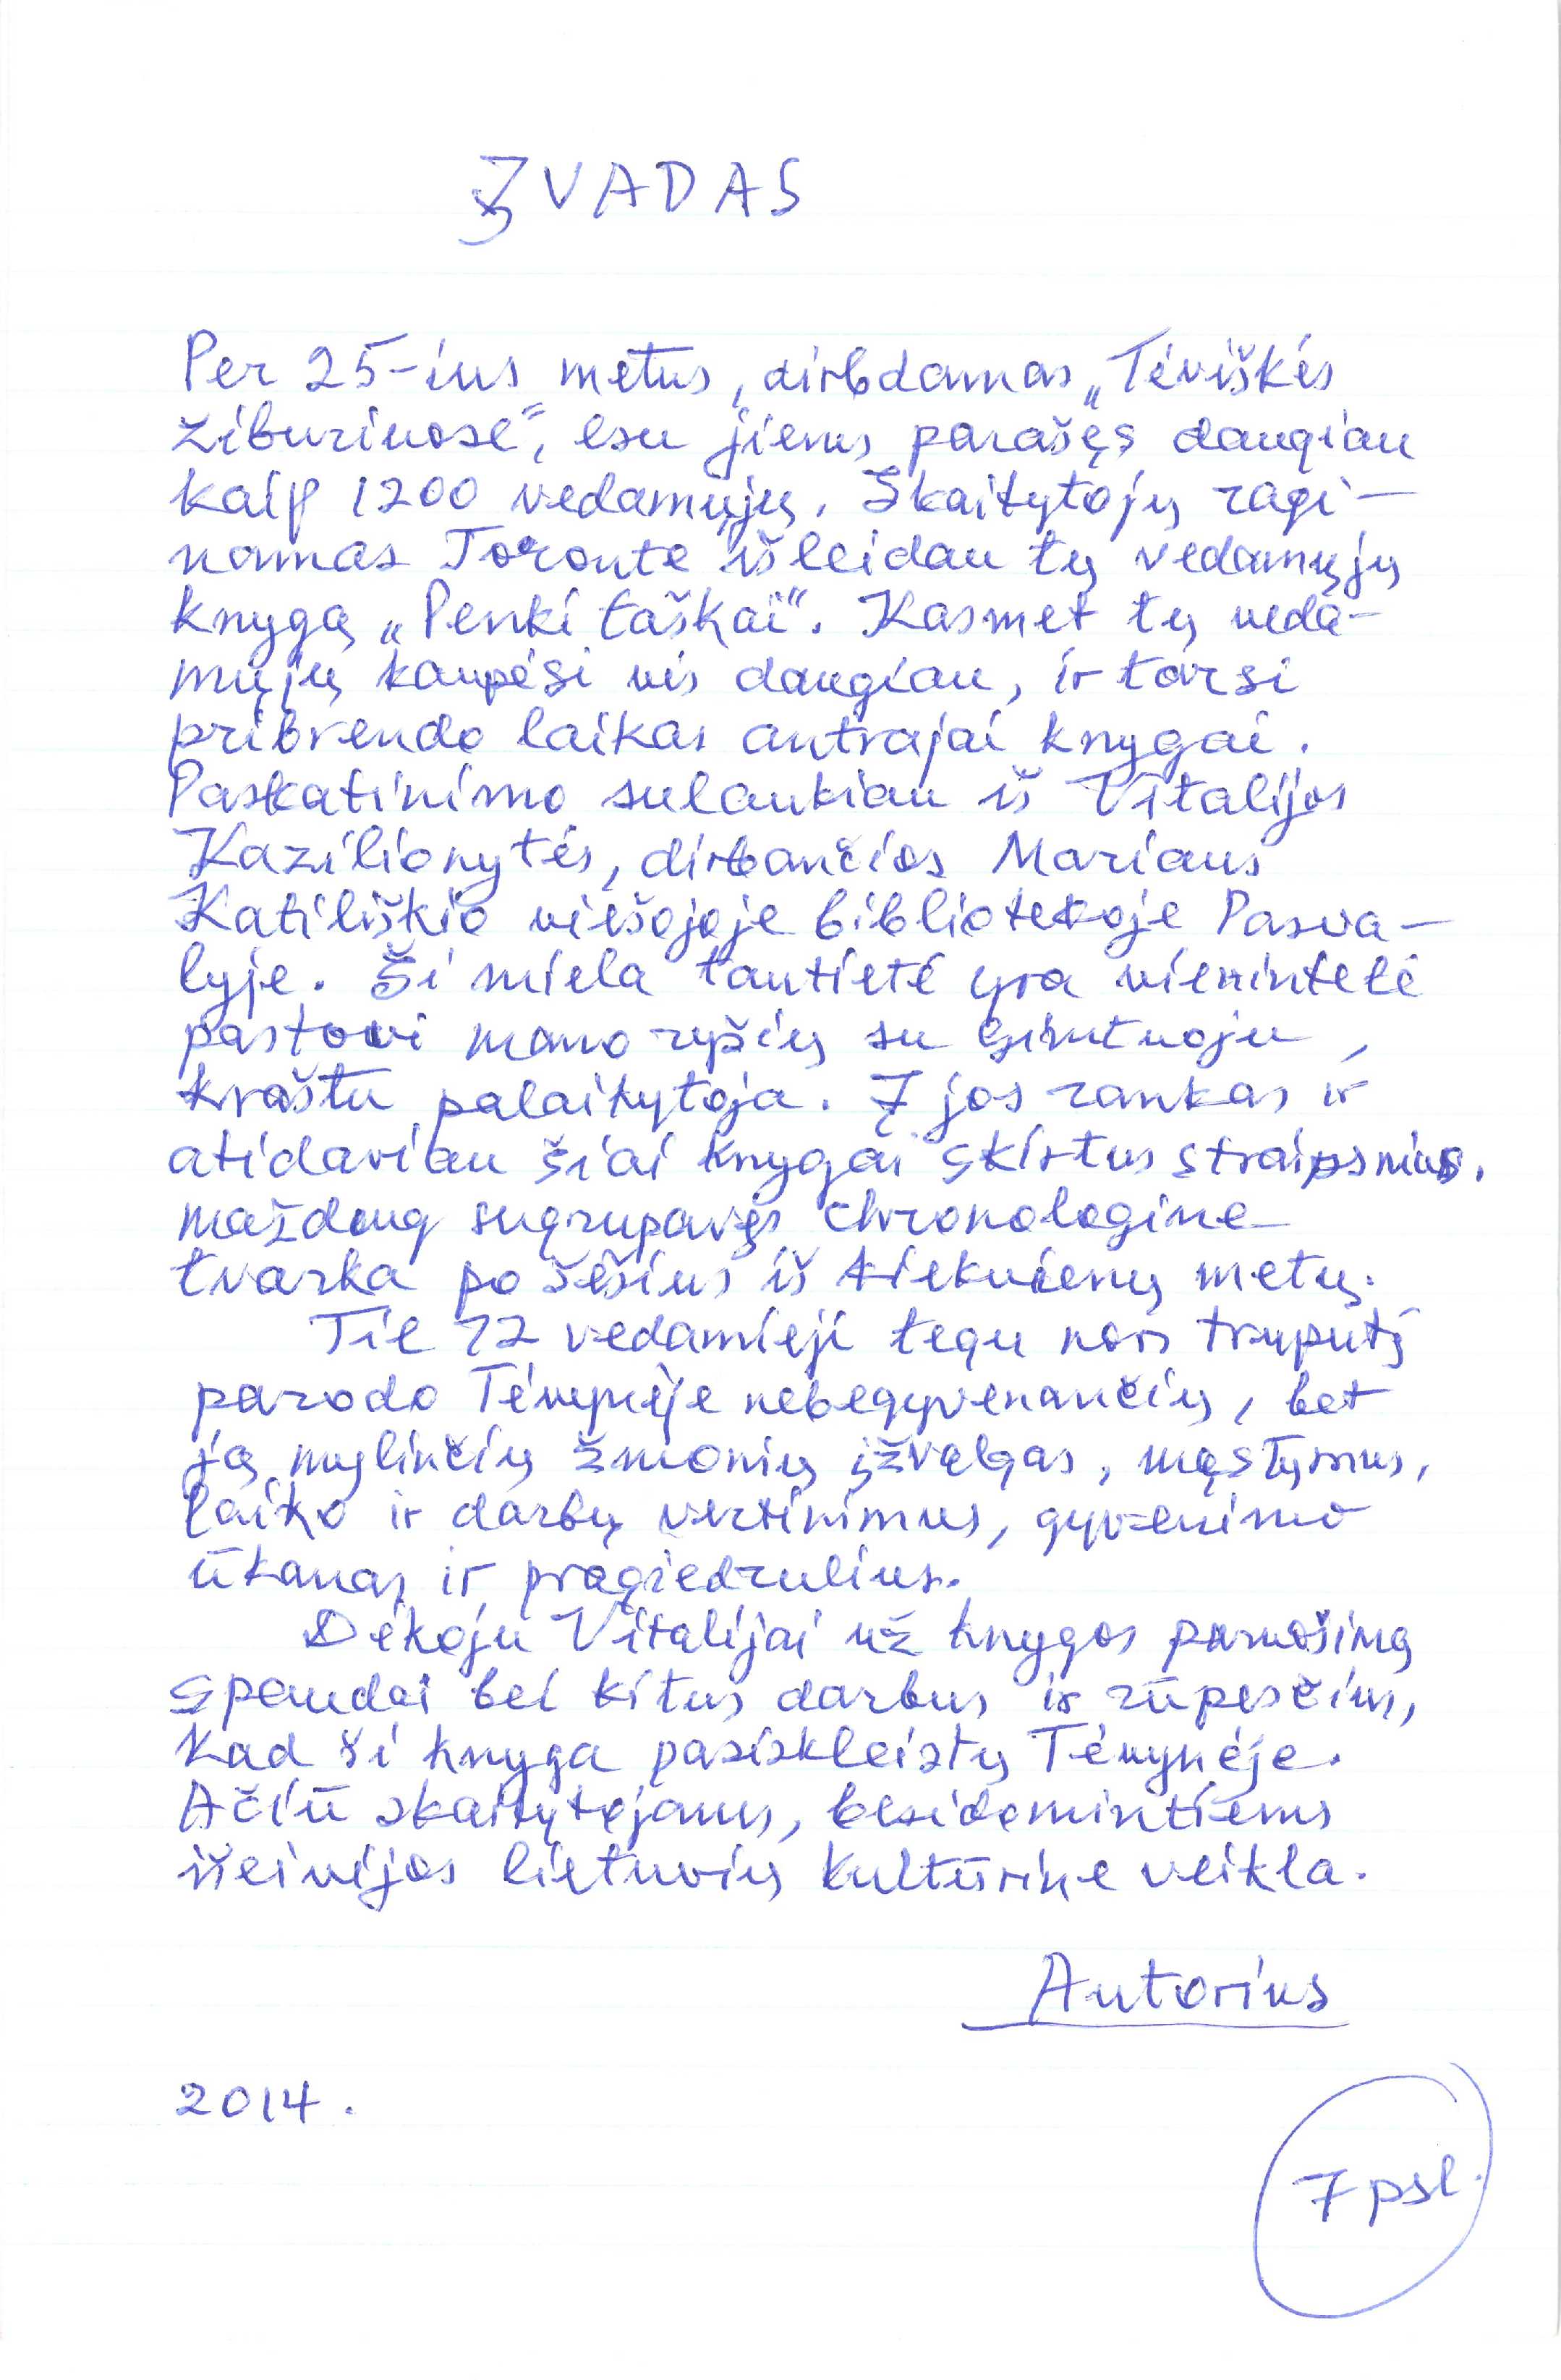 ĮVADAS
Per 25-ius metus, dirbdamas „Tėviškės
žiburiuose“, esu jiems parašęs daugiau
kaip 1200 vedamųjų. Skaitytojų ragi-
namas Toronte išleidau tų vedamųjų
knygą „Penki taškai“. Kasmet tų veda-
mųjų kaupėsi vis daugiau, ir tarsi
pribrendo laikas antrajai knygai.
Paskatinimo sulaukiau iš Vitalijos
Kazilionytės, dirbančios Mariaus
Katiliškio viešojoje bibliotekoje Pasva-
lyje. Ši miela tautietė yra vienintelė
pastovi mano ryšių su gimtuoju
kraštu palaikytoja. Į jos rankas ir
atidaviau šiai knygai skirtus straipsnius,
maždaug sugrupavęs chronologine
tvarka po šešius iš kiekvienų metų.
Tie 72 vedamieji tegu nors truputį
parodo Tėvynėje nebegyvenančių, bet
ją mylinčių žmonių įžvalgas, mąstymus,
laiko ir darbų vertinimus, gyvenimo
ūkanas ir pragiedrulius.
Dėkoju Vitalijai už knygos paruošimą
spaudai bei kitus darbus ir rūpesčius,
kad ši knyga pasiskleistų Tėvynėje.
Ačiū skaitytojams, besidomintiems
išeivijos lietuvių kultūrine veikla.
Autorius
2014.
7 psl.